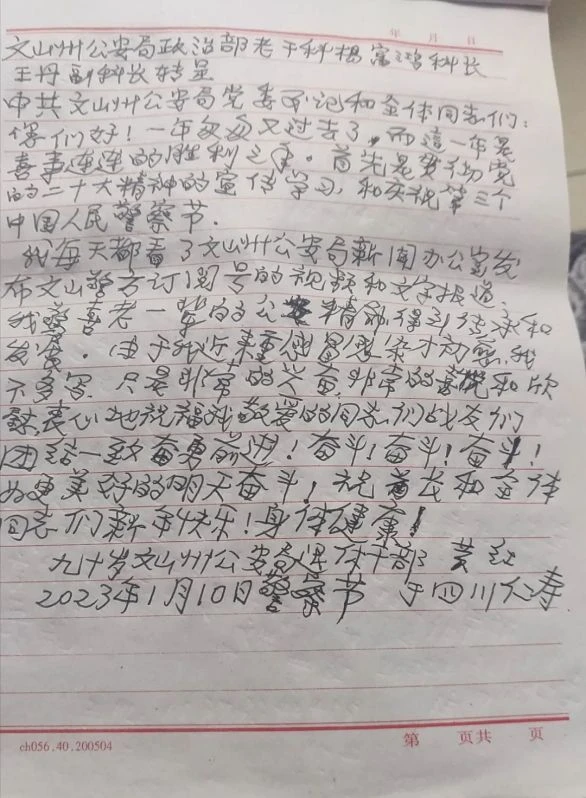 年 月 日
文山州公安局政治部老干科杨富鸿科长
王丹副科长转呈
中共文山州公安局党委书记和全体同志们：
你们好！一年匆匆又过去了，而這一年是
喜事连连的胜利之年。首先是我们党
的二十大精神的宣传学习，和庆祝第三个
中国人民警察节.
我每天都看了文山州公安局新闻办公室发
布文山警方订阅号的视频和文字报道.
我 喜老一辈的公安精神得到传承和
发展。由于我近来重感冒 染才初愈，我
不多写. 只是非常的兴奋，非常的喜悦和欣
慰，衷心地祝福我敬爱的同志们战友们
团结一致奋勇前进！奋斗！奋斗！奋斗！
为更美好的明天奋斗！祝首长和全体
同志们新年快乐！身体健康！
九十岁文山州公安局退休干部 黄
2023年1月10日警察节 于四川仁寿
ch056.40.200504
第 页共 页